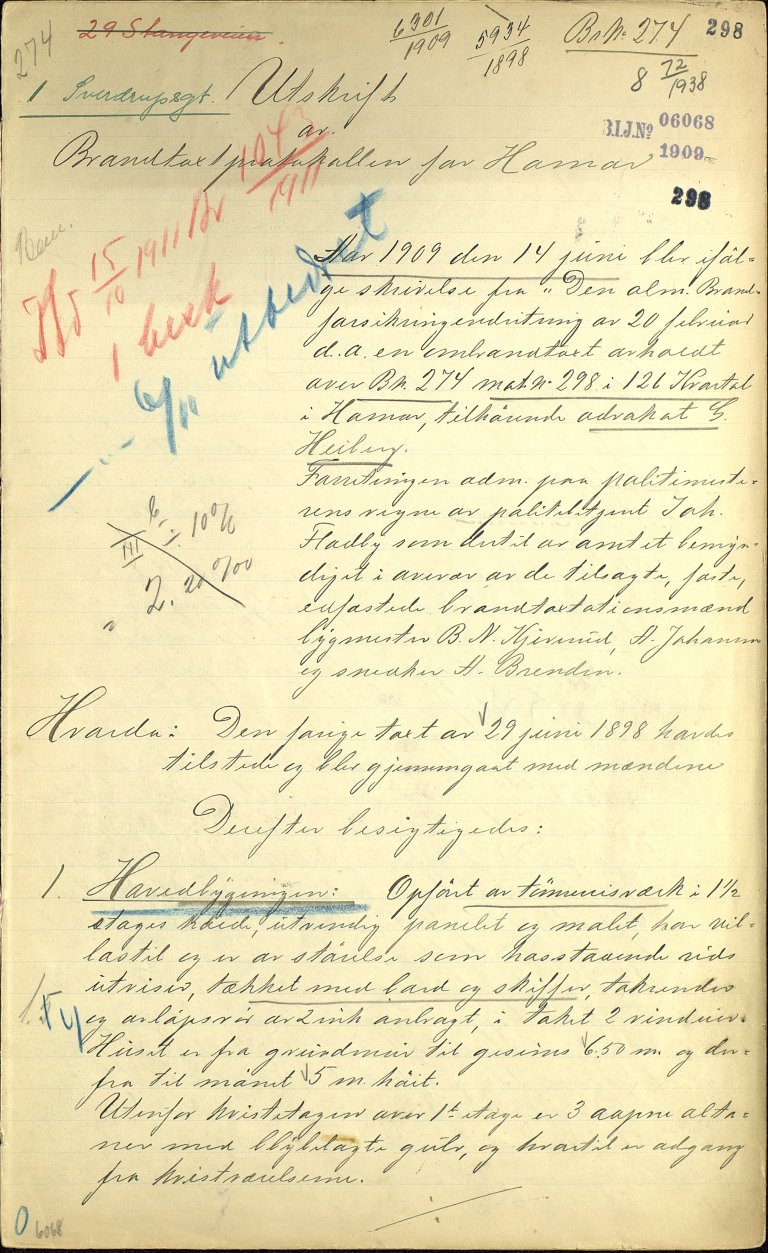 274
29 Stangeveien.
6301/1909
5934/1898
Br№ 274
298
8 12/1938
1 Sverdrupsgt.
Utskrift
av
B.I.J.№ 06068
1909
Brandtaxtprotokollen for Hamar
1043/1911
298
Hd 15/10 1911 Br
1 besk
utbedret
Aar 1909 den 14 juni blev iføl-
ge skrivelse fra "Den alm. Brand-
forsikringsindretning av 20 februar
d.a. en ombrandtaxt avholdt
over Bn. 274 mat. № 298 i 126 Kvartal
i Hamar, tilhørende advokat G.
Heiberg.
Forretningen adm. paa politimeste-
rens vegne av politibetjent Joh.
Fladby som dertil av amtet bemyn-
diget i overvær av de tilsagte, faste,
edfæstede brandtaxtationsmænd
bygmester B. N. Kjerrud, A. Johansen
og snedker A. Brenden.
10%
2. 20 %00
Hvorda: Den forrige taxt av 29 juni 1898 havdes
tilstede og blev gjennemgaat med mændene
Derefter besigtigedes:
1. Hovedbygningen: Opført av tømmerværk i 1½
etages høide, utvendig panelt og malet, har vil-
lastil og er av størelse som hosstaaende rids
utviser, tækket med bord og skiffer, takrender
og avløpsrør av zink anbragt, i taket 2 vinduer.
Huset er fra grundmur til gesims 6.50 m. og der-
fra til mønet 5 m. høit.
Utenfor kvistetagen over 1ste etage er 3 aapne alta-
ner med blybelagte gulv, og hvortil er adgang
fra kvistværelserne.
6068